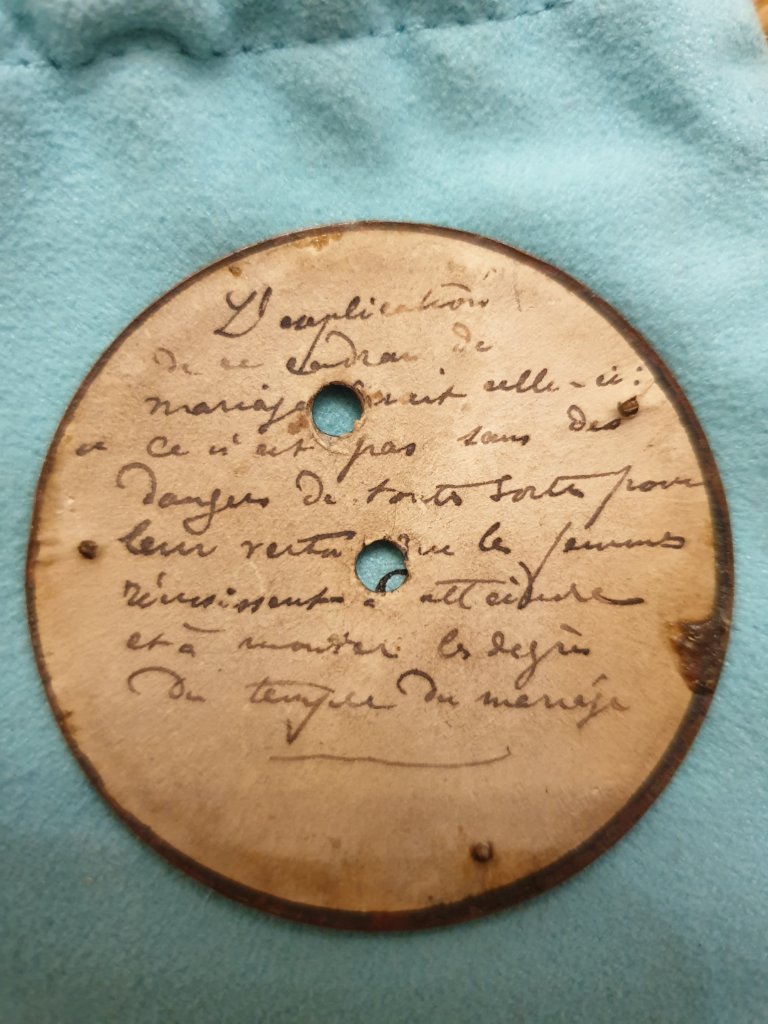 L'explication
de ce cadran de
mariage serait celle-ci:
" Ce n'est pas sans des
dangers de toutes sortes pour
leur vertu que les femmes
réussissent à atteindre
et à monter les degrés
du temple du mariage